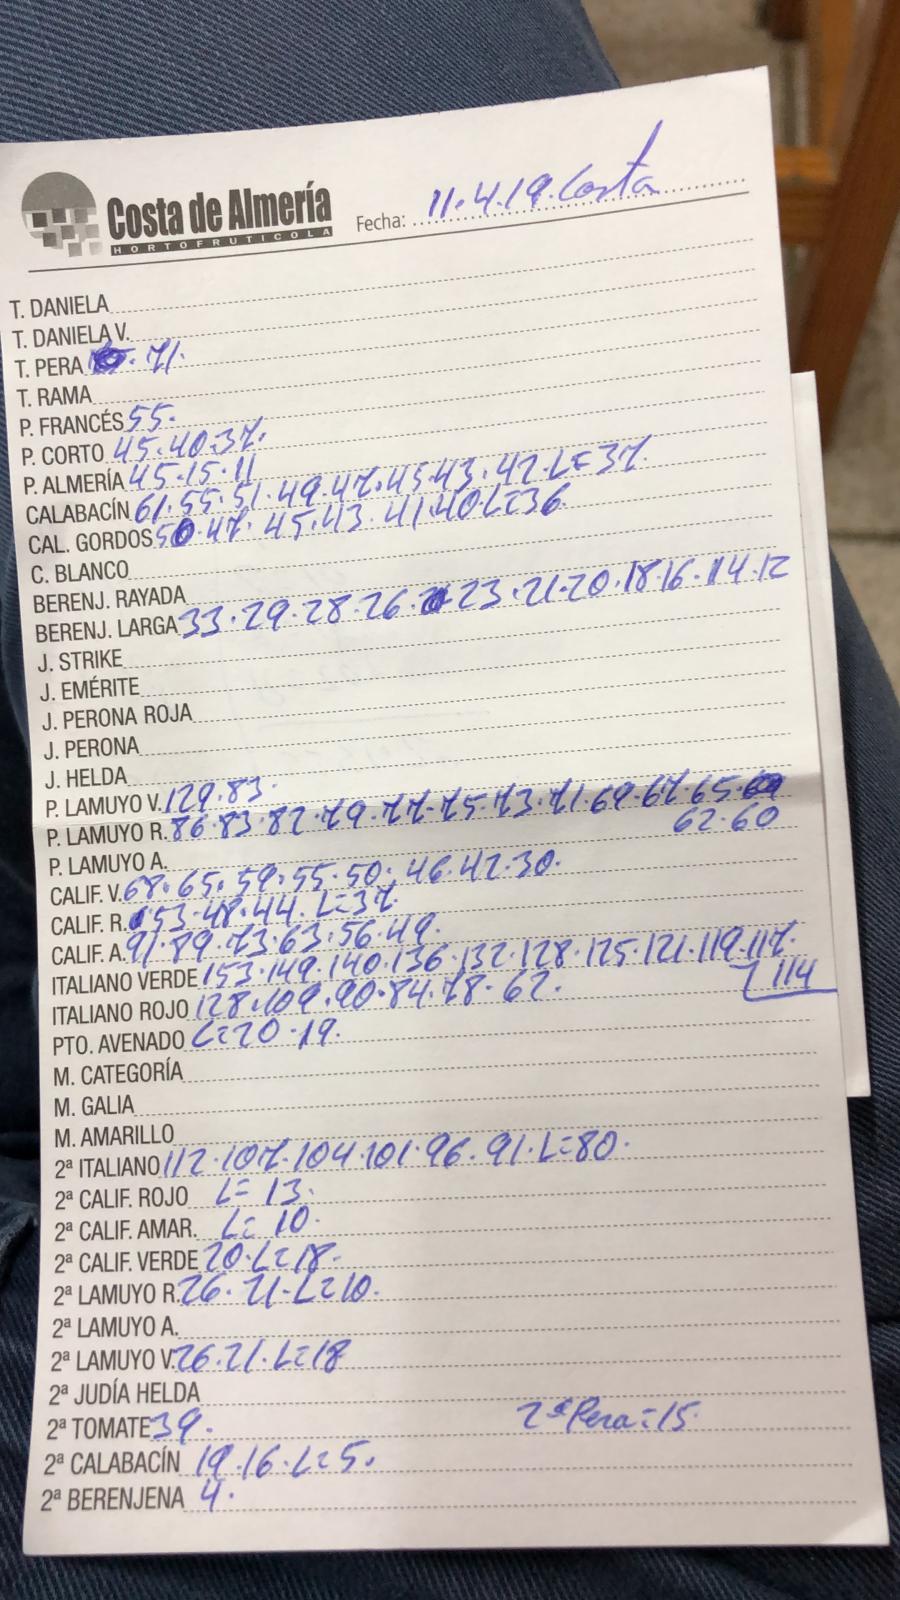 Costa de Almería
HORTOFRUTICOLA
Fecha: 11.4.19. Costa
T. DANIELA
T. DANIELA V.
T. PERA 71.
T. RAMA
P. FRANCÉS 55.
P. CORTO 45.40.37.
P. ALMERÍA 45.15.11
CALABACÍN 61.55.51.49.47.45.43.42.L=37.
CAL. GORDOS 50.47.45.43.41.40L=36
C. BLANCO
BERENJ. RAYADA
BERENJ. LARGA 33.29.28.26.23.21.20.18.16.14.12
J. STRIKE
J. EMÉRITE
J. PERONA ROJA
J. PERONA
J. HELDA
P. LAMUYO V. 129.83.
P. LAMUYO R. 86.83.82.79.77.75.73.71.69.67.65.
62.60
P. LAMUYO A.
CALIF. V. 68.65.59.55.50.46.42.30.
CALIF. R. 53.48.44.L=37
CALIF. A. 91.89.73.63.56.49.
ITALIANO VERDE 153.149.140.136.132.128.125.121.119.117.
114
ITALIANO ROJO 128.109.90.84.78.62.
PTO. AVENADO L=20.19.
M. CATEGORÍA
M. GALIA
M. AMARILLO
2ª ITALIANO 112.107.104.101.96.91.L=80.
2ª CALIF. ROJO L=13.
2ª CALIF. AMAR. L=10.
2ª CALIF. VERDE 20.L=18.
2ª LAMUYO R. 26.21.L=10.
2ª LAMUYO A.
2ª LAMUYO V. 26.21.L=18
2ª JUDÍA HELDA
2ª TOMATE 39. 2ª Pera=15.
2ª CALABACÍN 19.16.L=5.
2ª BERENJENA 4.